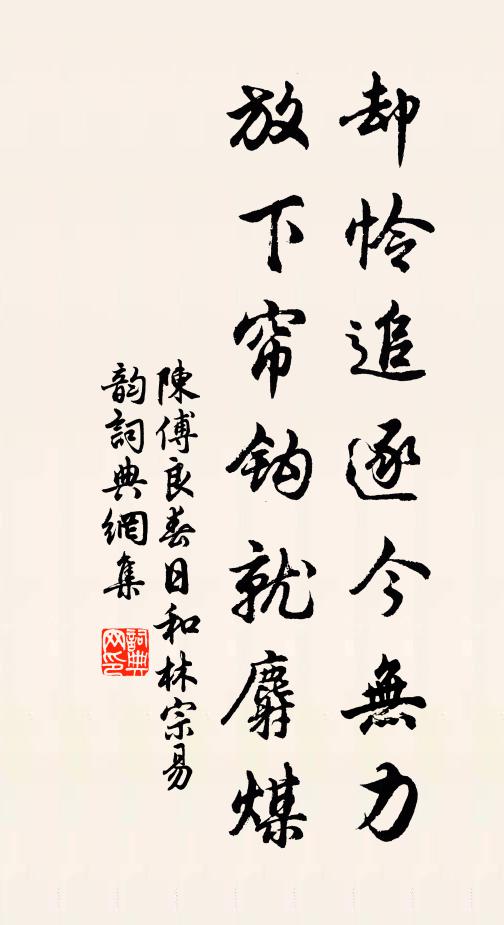 却怜追逐今無力
放下帘鈎就麝煤
陳傅良春日和林宗易
韵詞典網集
詞典网印